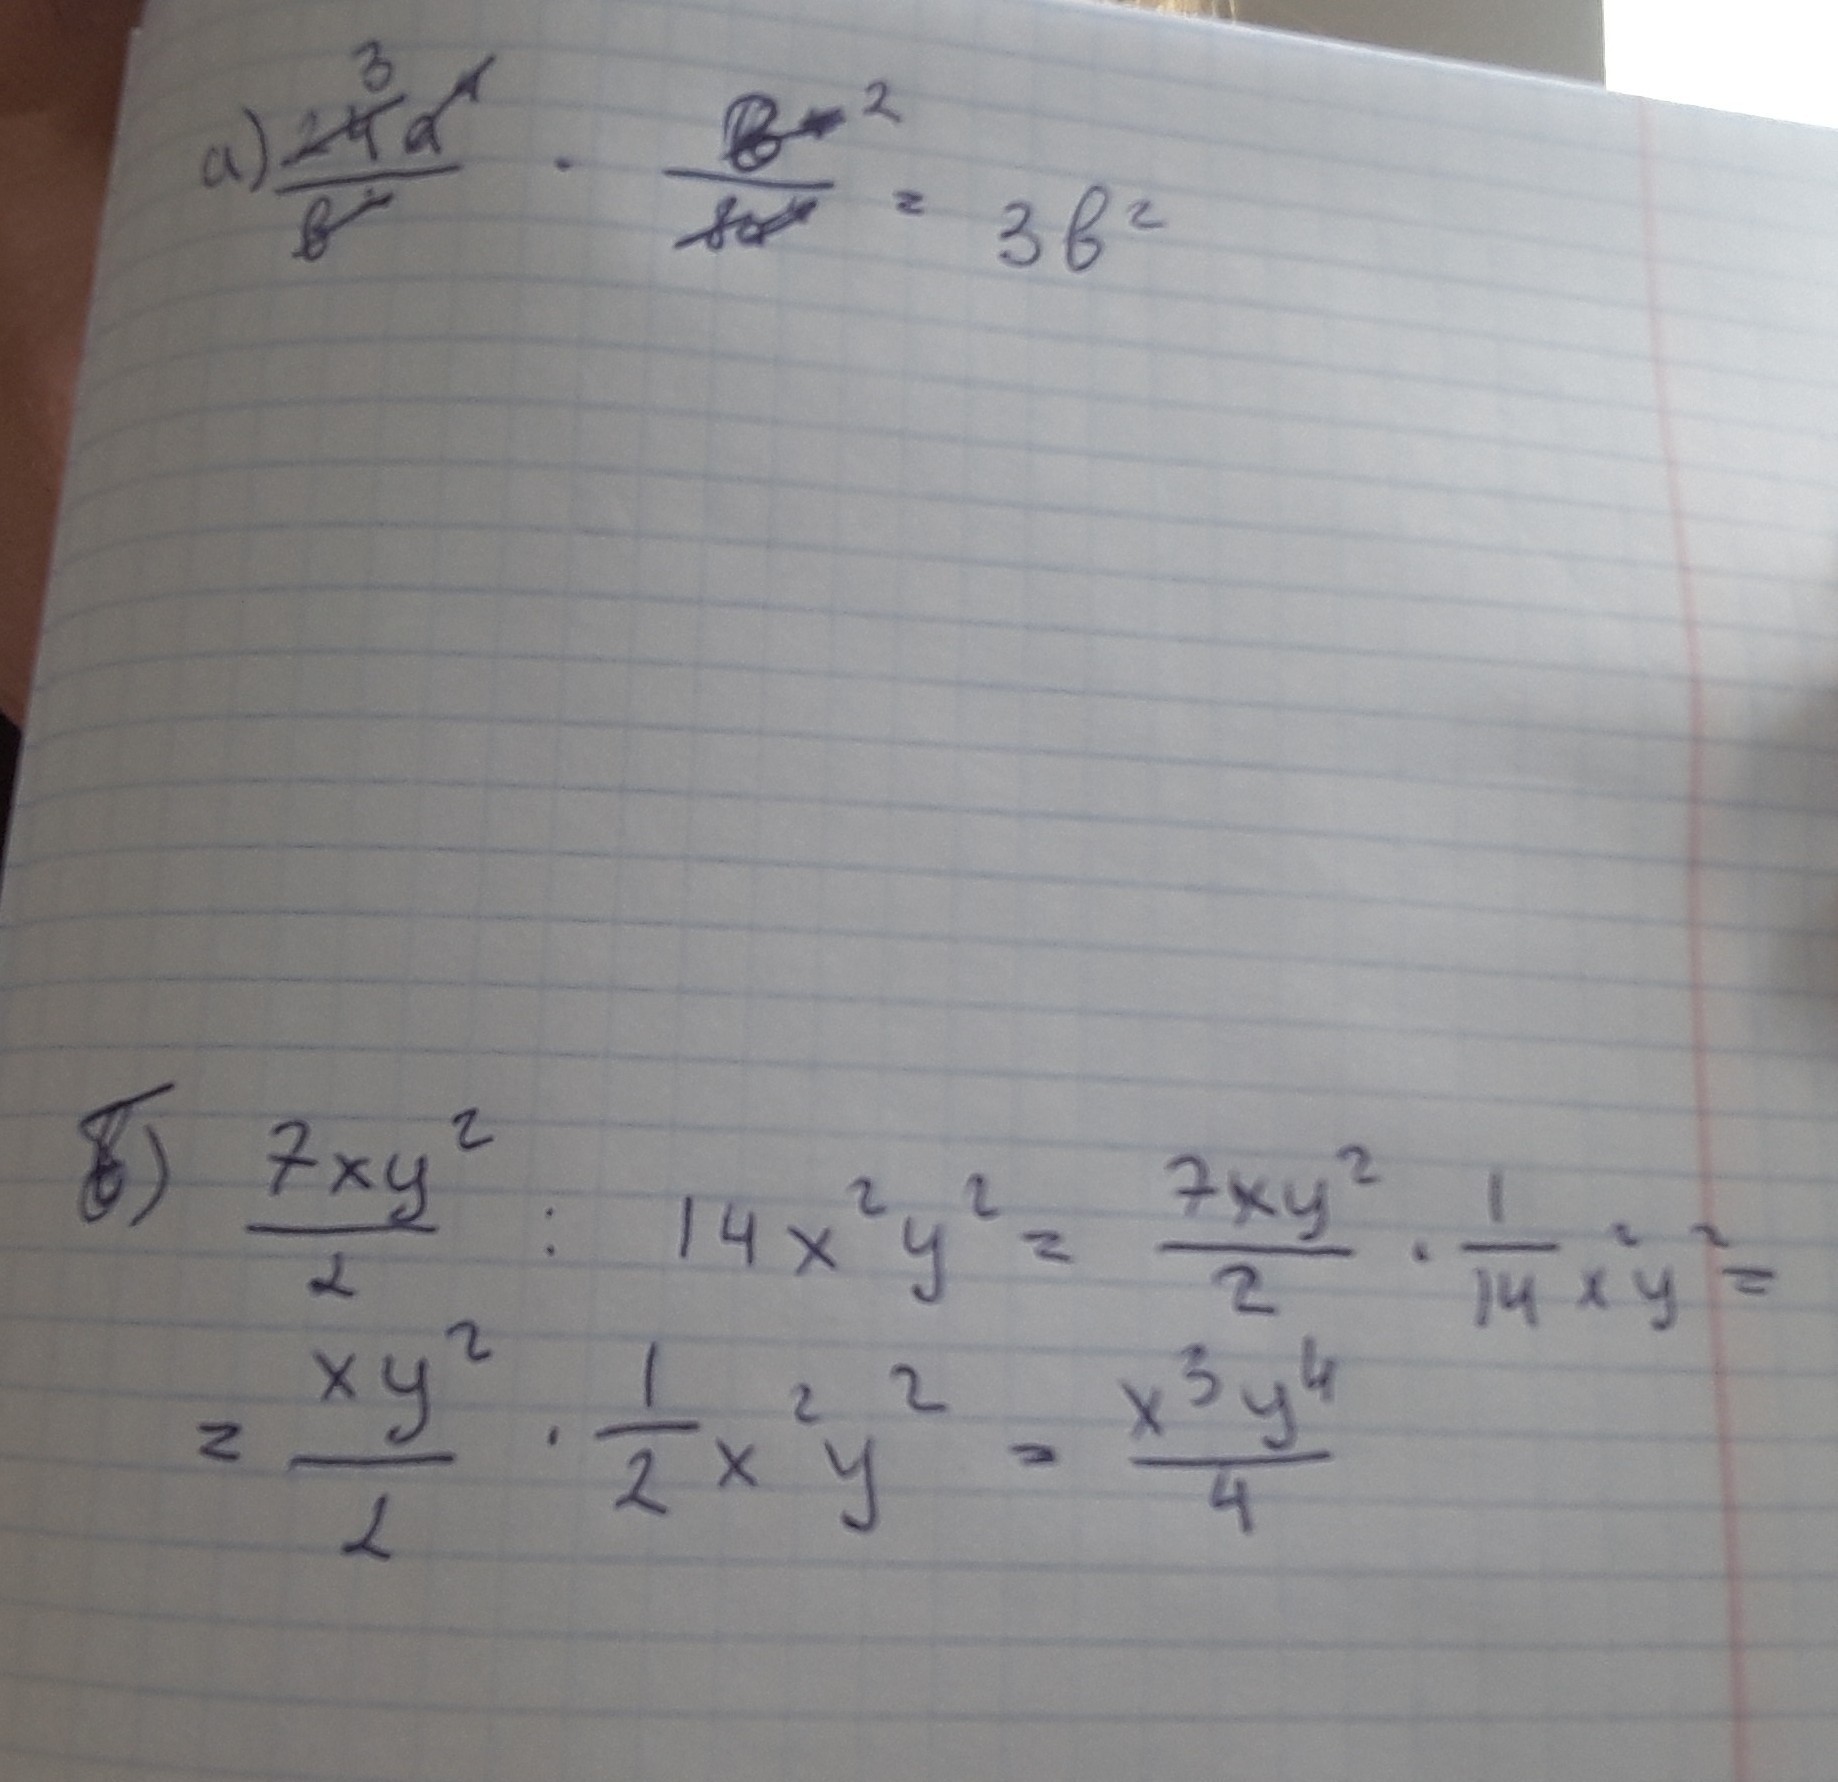 3
а) 24a / b · b 2 / 8a = 3b²
б) 7xy² / 2 : 14x²y² = 7xy² / 2 · 1 / 14 x²y² =
= xy² / 2 · 1 / 2 x²y² = x³y⁴ / 4